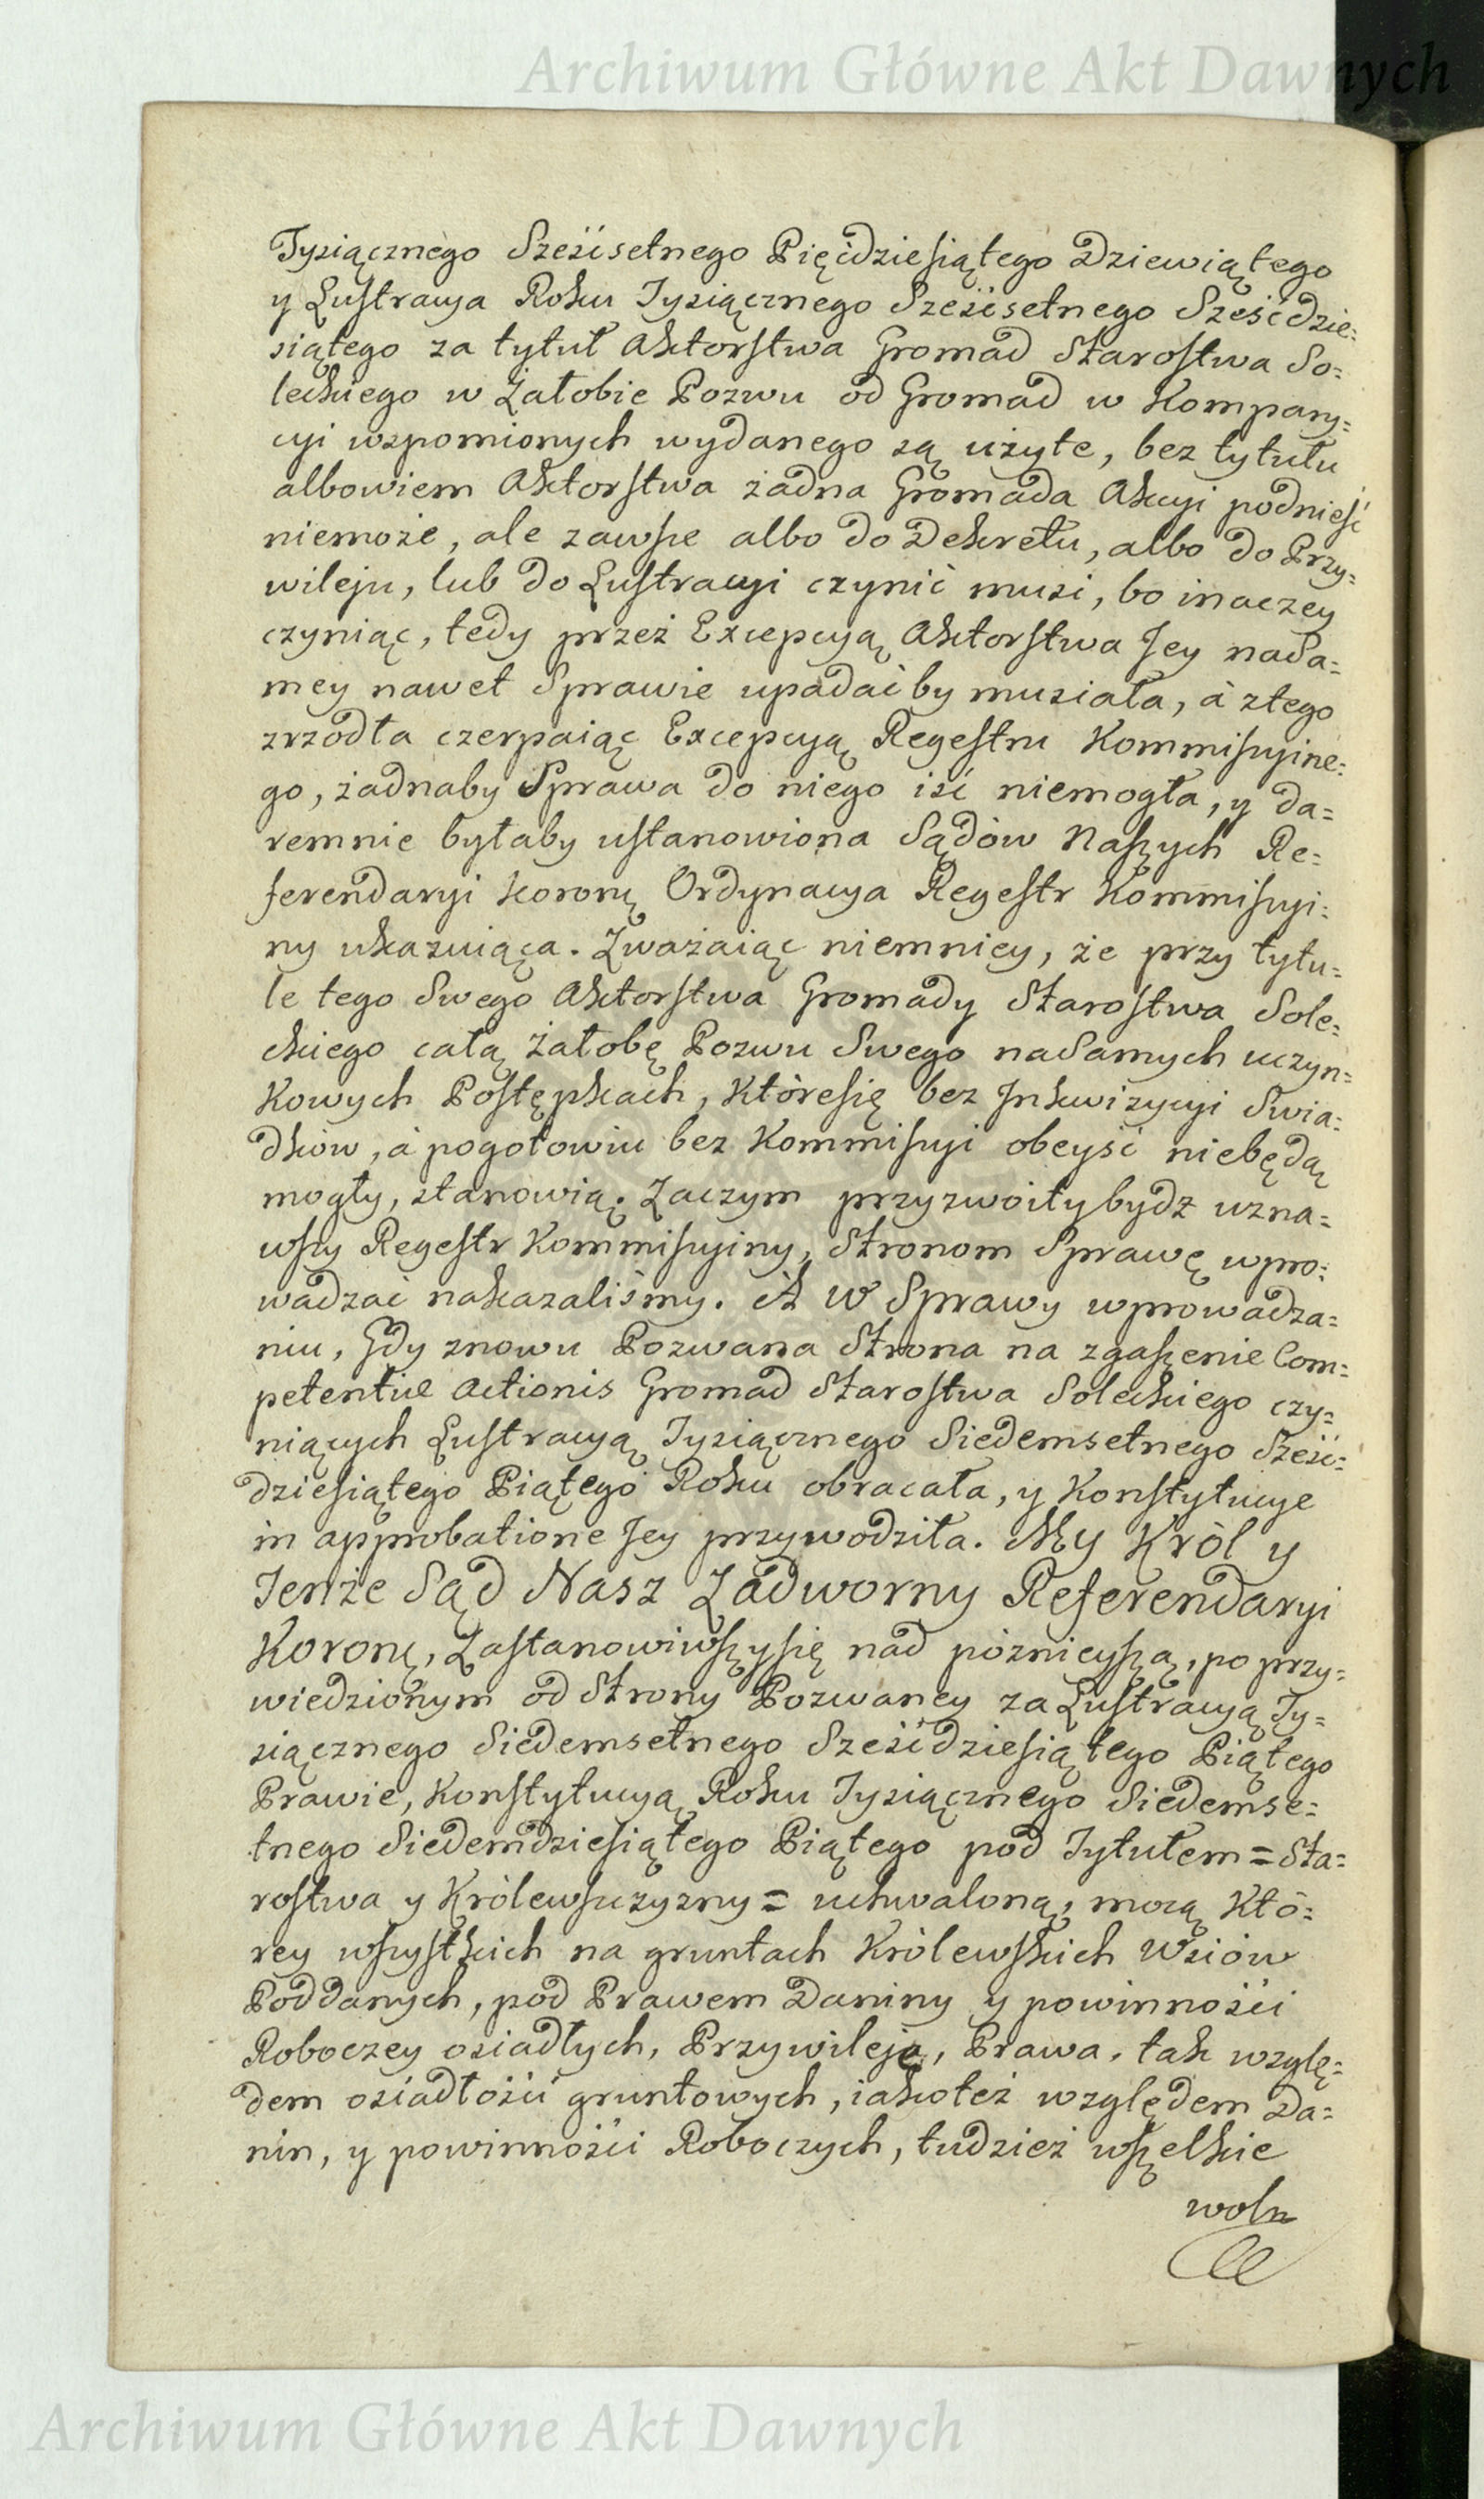 Archiwum Główne Akt Dawnych
Tysiącznego Sześćsetnego Pięćdziesiątego Dziewiątego
y Lustracya Roku Tysiącznego Sześćsetnego Sześćdzie=
siątego za tytuł Aktorstwa Gromad Starostwa So=
leckiego w Żałobie Pozwu od Gromad w Kompary=
cyi wspomionych wydanego są użyte, bez tytułu
albowiem Aktorstwa żadna Gromada Akcyi podnieść
niemoże, ale zawsze albo do Dekretu, albo do Przy=
wileju, lub do Lustracyi czynić musi, bo inaczey
czyniąc, tedy przez Excepcyą Aktorstwa Jey na Sa=
mey nawet Sprawie upadać by musiała, à z tego
zrzodła czerpaiąc Excepcyą Regestru Kommissyine=
go, żadnaby Sprawa do niego iść niemogła, y da=
remnie byłaby ustanowiona Sądów Naszych Re=
ferendaryi Koronney Ordynacya Regestr Kommissyi=
ny ukazuiąca. Zważaiąc niemniey, że przy tytu=
le tego Swego Aktorstwa Gromady Starostwa Sole=
ckiego całą Żałobę Pozwu Swego na Samych uczyn=
kowych Postępkach, które się bez Inkwizycyi Swia=
dków, à pogotowiu bez Kommissyi obeyść niebędą
mogły, stanowią. Zaczym przyzwoity bydz uzna=
wszy Regestr Kommissyiny, Stronom Sprawę wpro=
wadzać nakazaliśmy. A w Sprawy wprowadza=
niu, Gdy znowu Pozwana Strona na zgaszenie Com=
petentiæ Actionis Gromad Starostwa Soleckiego czy=
niących Lustracyą Tysiącznego Siedemsetnego Sześć=
dziesiątego Piątego Roku obracała, y Konstytucye
in approbatione Jey przywodziła. My Król y
Tenże Sąd Nasz Zadworny Referendaryi
Koronney, Zastanowiwszy się nad póznieyszą, po przy=
wiedzionym od Strony Pozwaney za Lustracyą Ty=
siącznego Siedemsetnego Sześćdziesiątego Piątego
Prawie, Konstytucyą Roku Tysiącznego Siedemse=
tnego Siedemdziesiątego Piątego pod Tytułem = Sta=
rostwa y Królewszczyzny = uchwaloną, mocą Któ=
rey wszystkich na gruntach Królewskich Wsiów
Poddanych, pod Prawem Daniny y powinności
Roboczey osiadłych, Przywileje, Prawa, tak wzglę=
dem osiadłości gruntowych, iakoteż względem Da=
nin, y powinności Roboczych, tudzież wszelkie
woln
Archiwum Główne Akt Dawnych